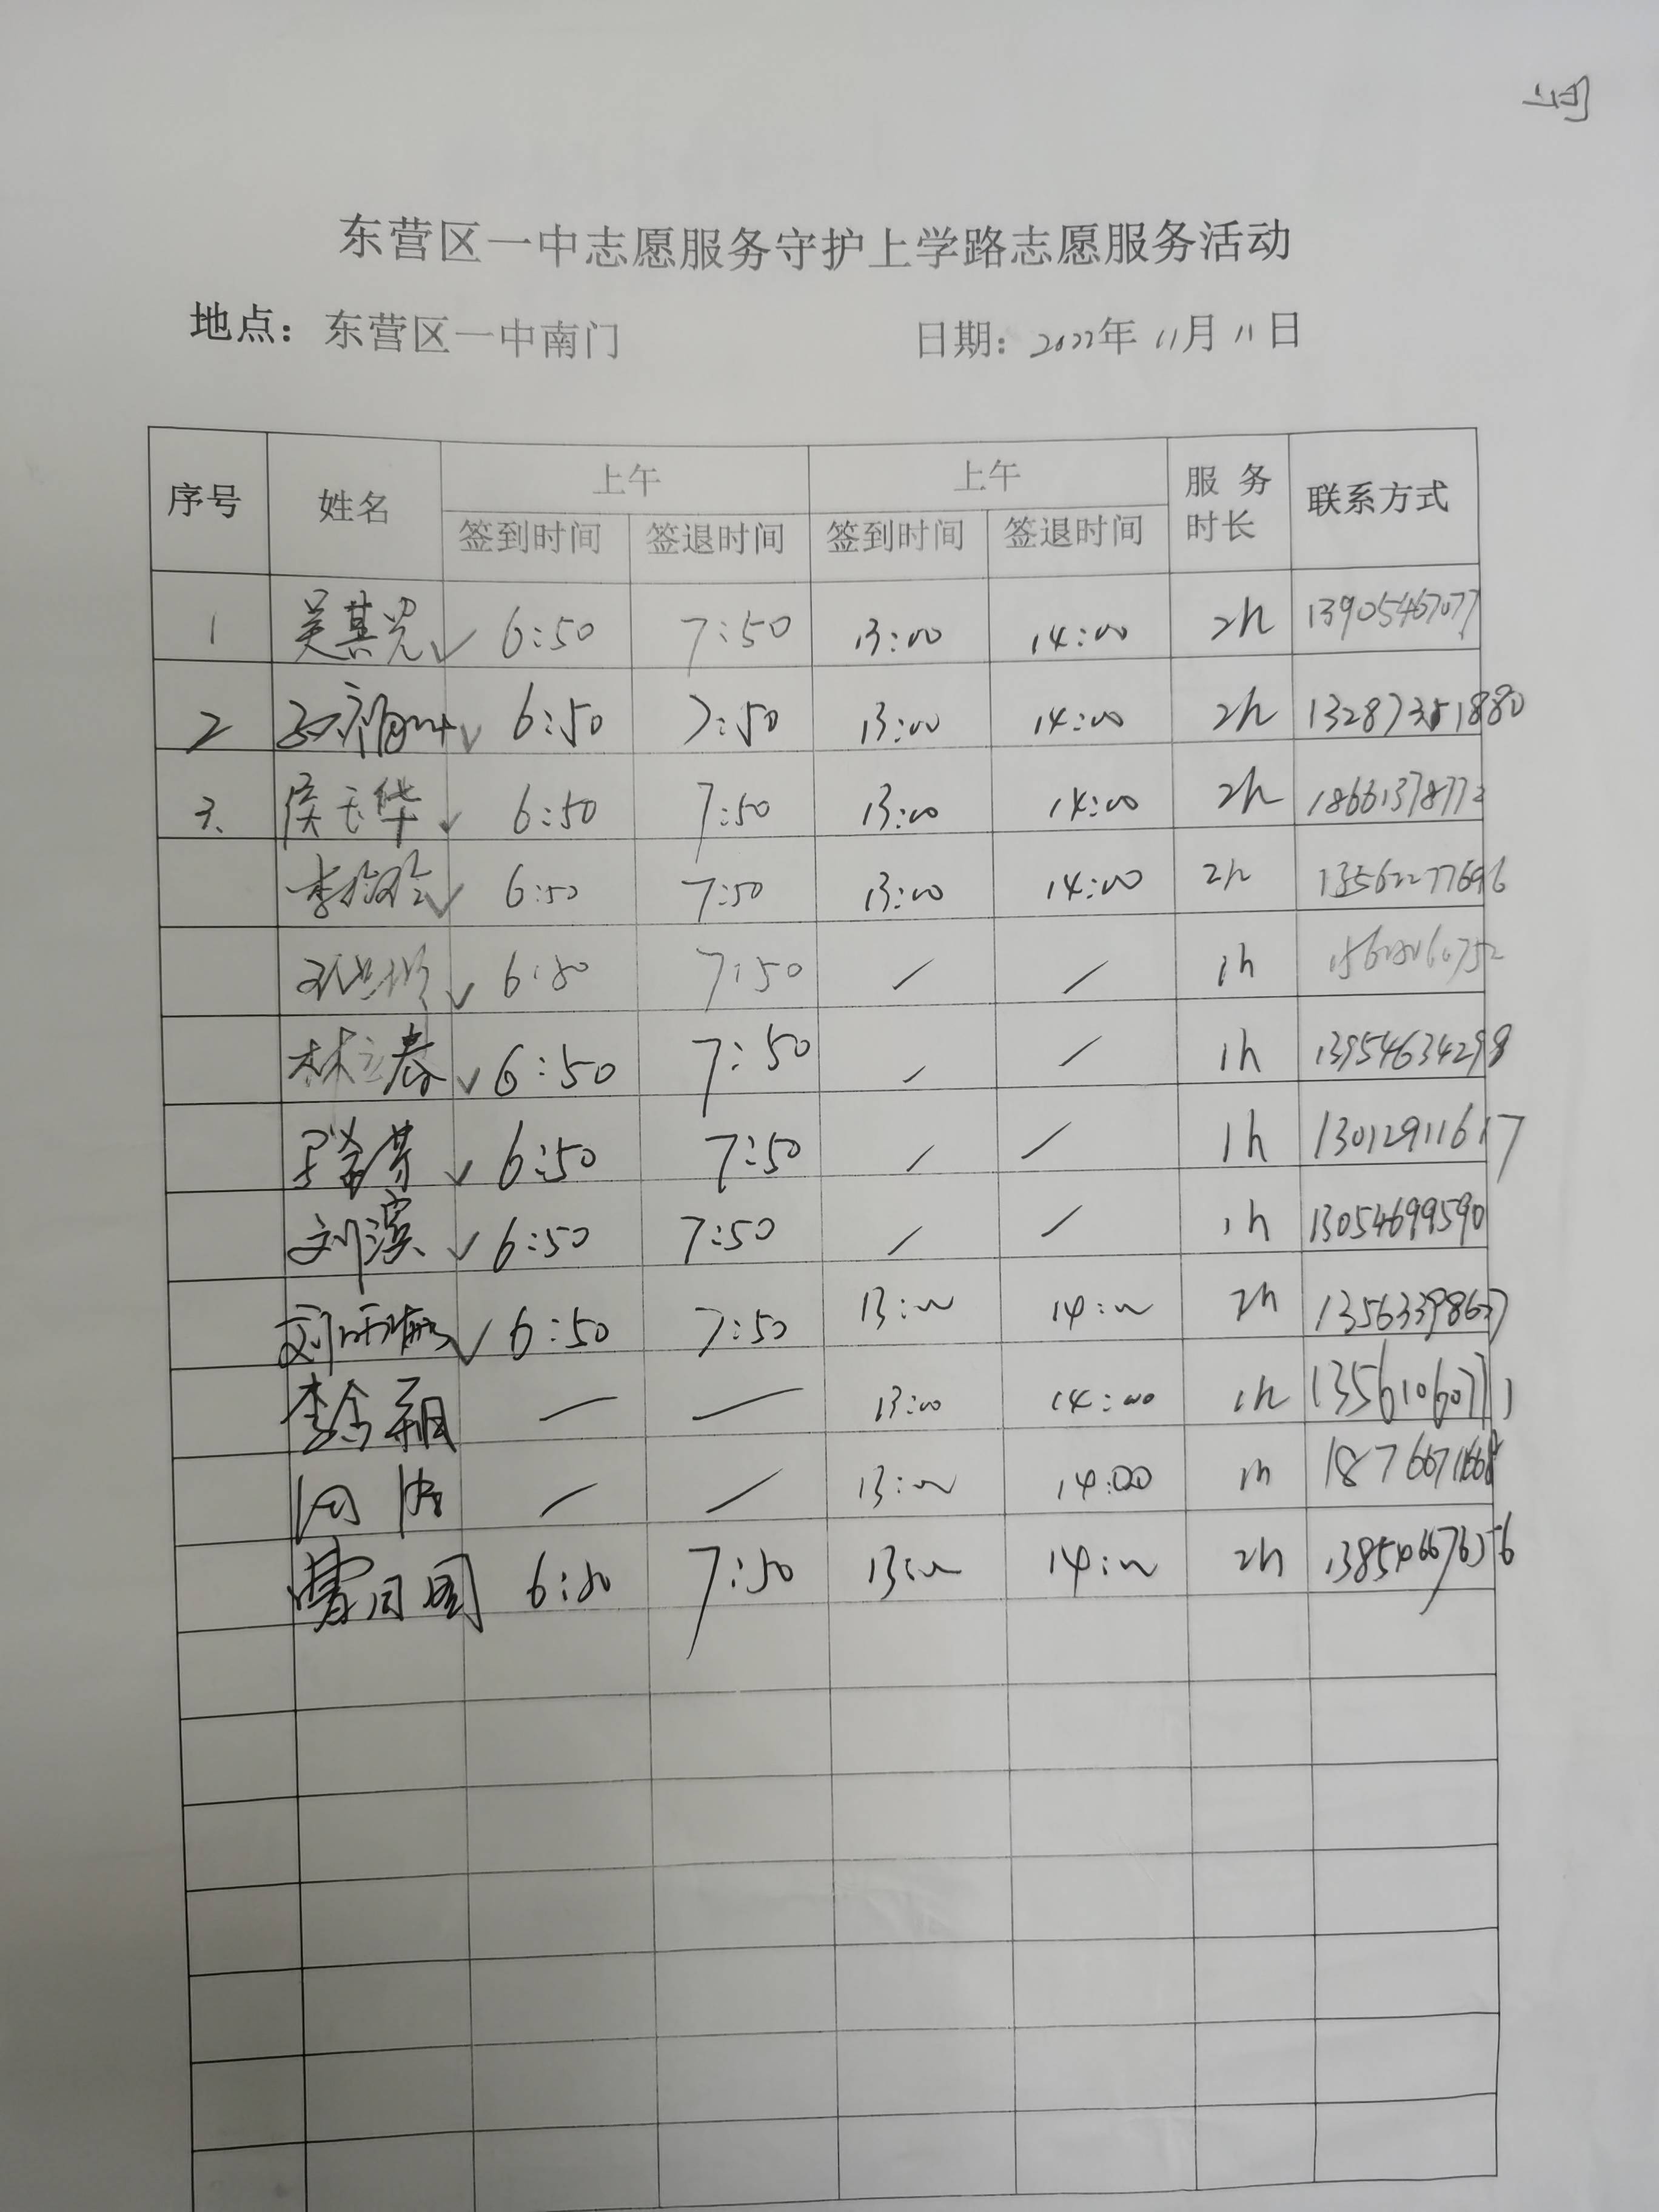 东营区一中志愿服务守护上学路志愿服务活动
地点：东营区一中南门 日期：2022年11月11日
序号 姓名 上午 上午 服务时长 联系方式
签到时间 签退时间 签到时间 签退时间
1 吴其光 ✓ 6:50 7:50 13:00 14:00 2h 13905467077
2 ✓ 6:50 7:50 13:00 14:00 2h 13287351880
3、 侯玉华 ✓ 6:50 7:50 13:00 14:00 2h 18661378772
✓ 6:50 7:50 13:00 14:00 2h 13562277696
✓ 6:50 7:50 / / 1h
林立春 ✓ 6:50 7:50 / / 1h 13954634298
✓ 6:50 7:50 / / 1h 13012911617
刘滨 ✓ 6:50 7:50 / / 1h 13054699590
✓ 6:50 7:50 13:00 14:00 2h
— — 13:00 14:00 1h 13561060771
/ / 13:00 14:00 1h
6:50 7:50 13:00 14:00 2h